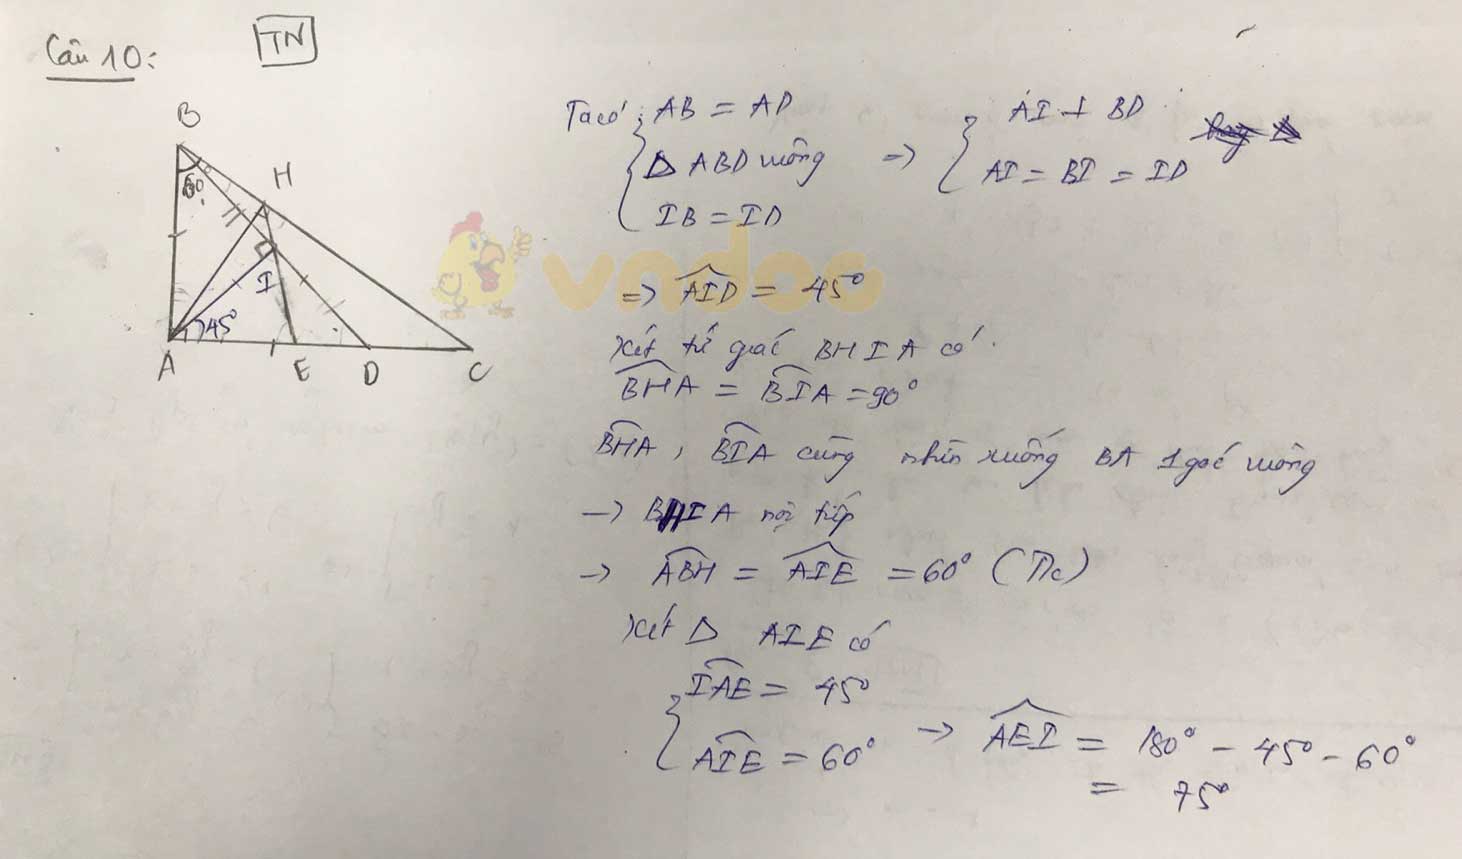 Câu 10:
TN
B
60°
H
I
45°
A
E
D
C
Ta có: AB = AD
Δ ABD vuông
IB = ID
=> AI ⊥ BD
AI = BI = ID
vndoc
=> AID = 45°
Xét tứ giác BHIA có
BHA = BIA = 90°
BHA, BIA cùng nhìn xuống BA 1 góc vuông
-> BHIA nội tiếp
-> ABH = AIE = 60° (T/c)
Xét Δ AIE có
IAE = 45°
AIE = 60°
-> AEI = 180° - 45° - 60°
= 75°